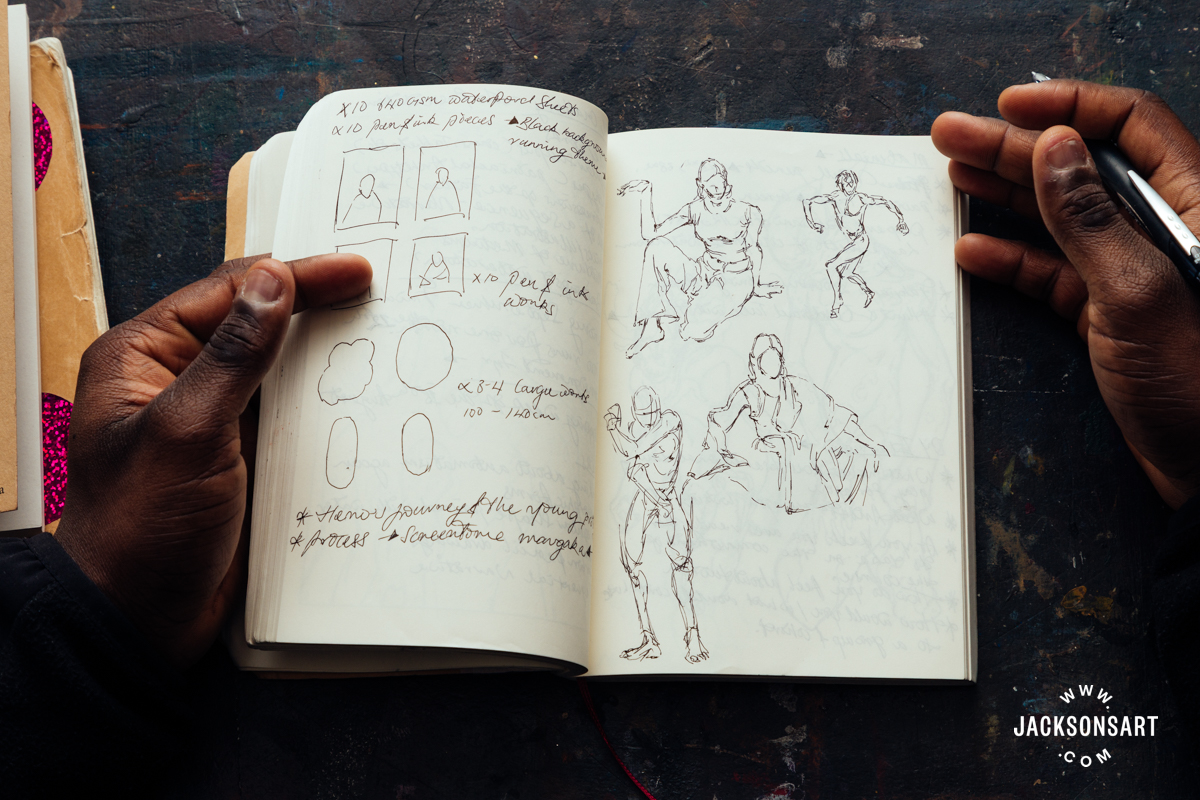 x10 640gsm waterford sheets
x10 pen & ink pieces → Black background
running theme
x10 pen & ink
works
x 3-4 large works
100 - 140cm
* Honour journey of the young
* process → Screentone mangaka
a
WWW.
JACKSONSART
.COM